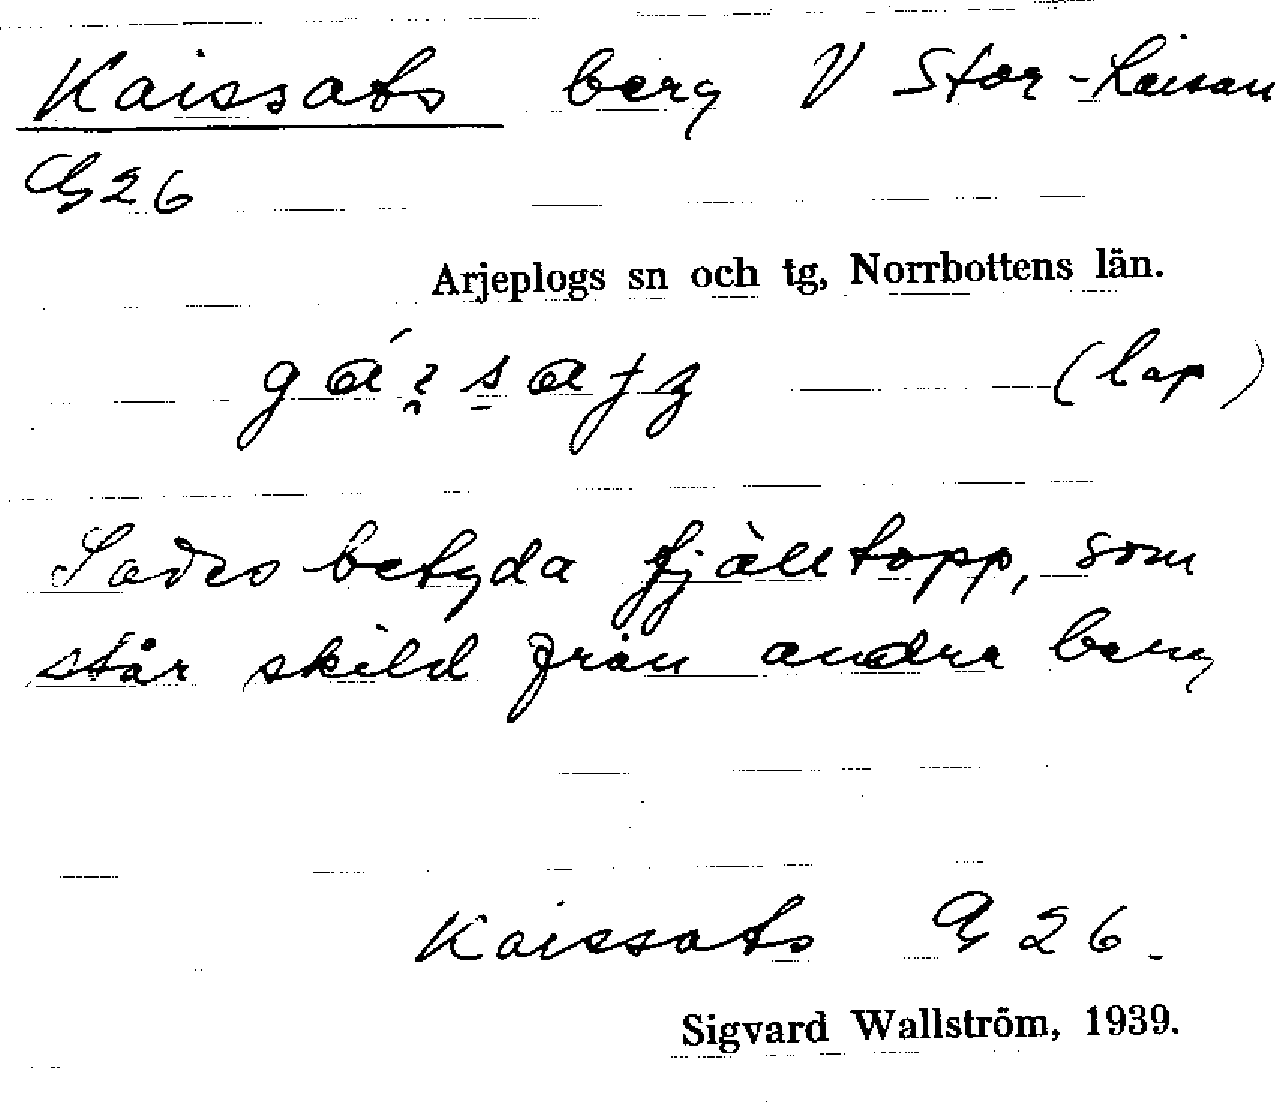 Kaissats berg V Stor-Laisan
G 26
Arjeplogs sn och tg, Norrbottens län.
(lap)
Sades betyda fjälltopp, som
står skild från andra berg
Kaissats G 26.
Sigvard Wallström, 1939.